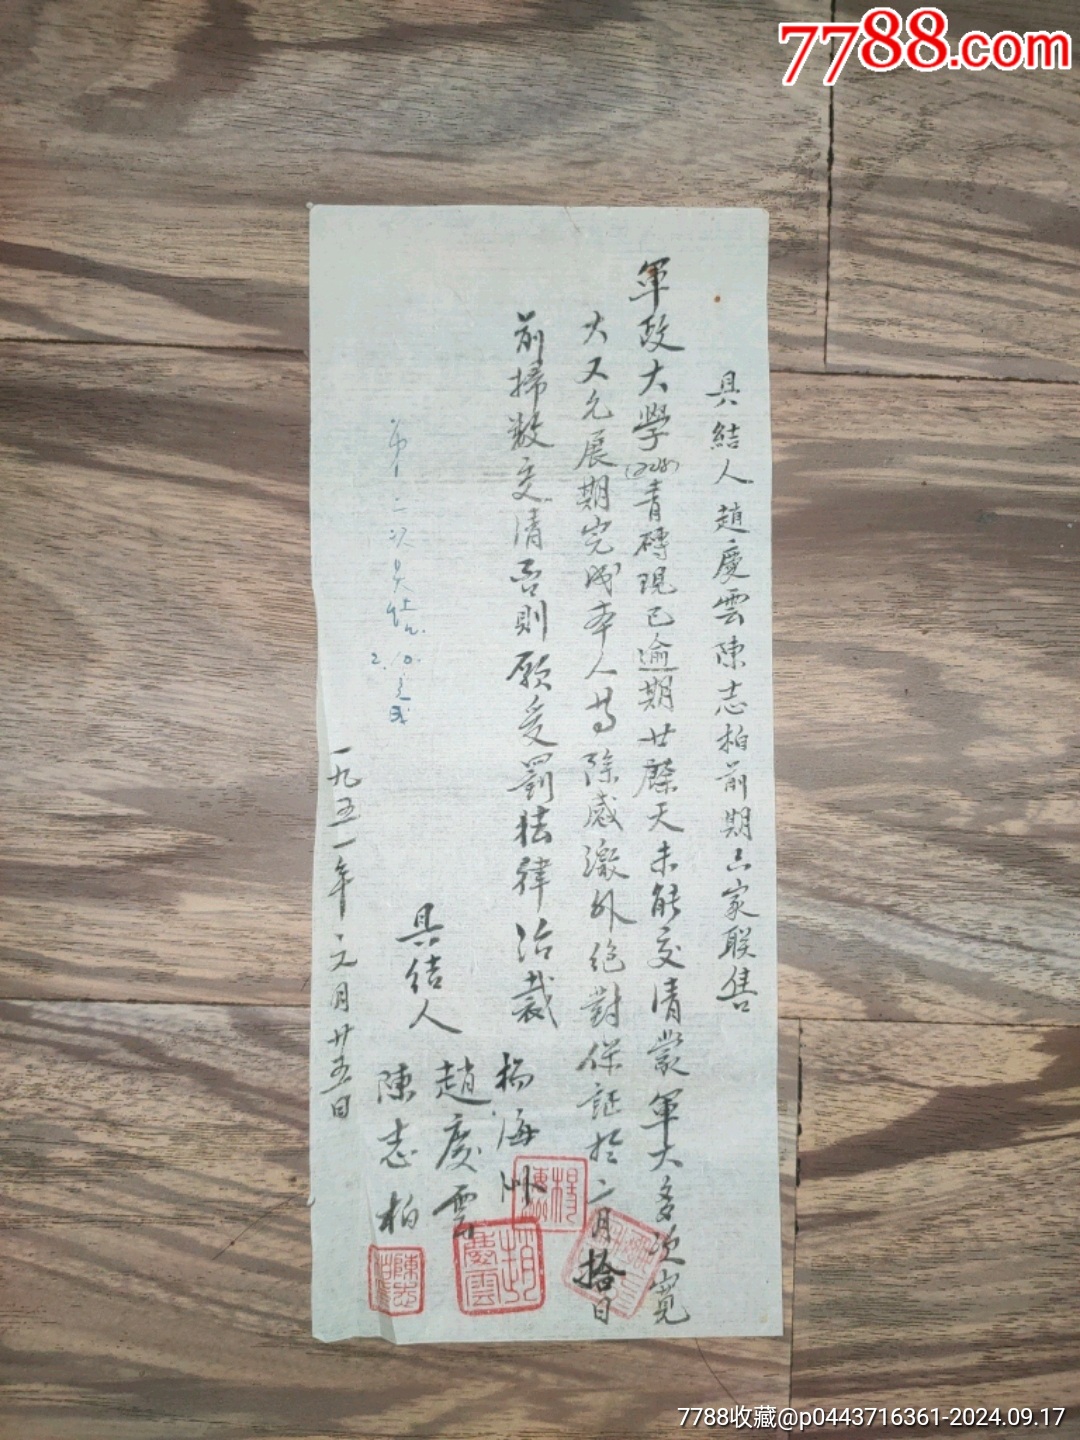 7788.com
具結人趙慶雲陳志柏前期六家联售
軍政大學青磚現已逾期廿餘天未能交清蒙軍大多次寬
大又允展期完成本人等除感激外絕對保証於二月拾日
前掃數交清否則願受罰法律治裁
具结人
楊海川
趙慶雲
陳志柏
一九五一年元月廿五日
第二次
2.10.完成
趙慶雲
7788收藏@p0443716361-2024.09.17